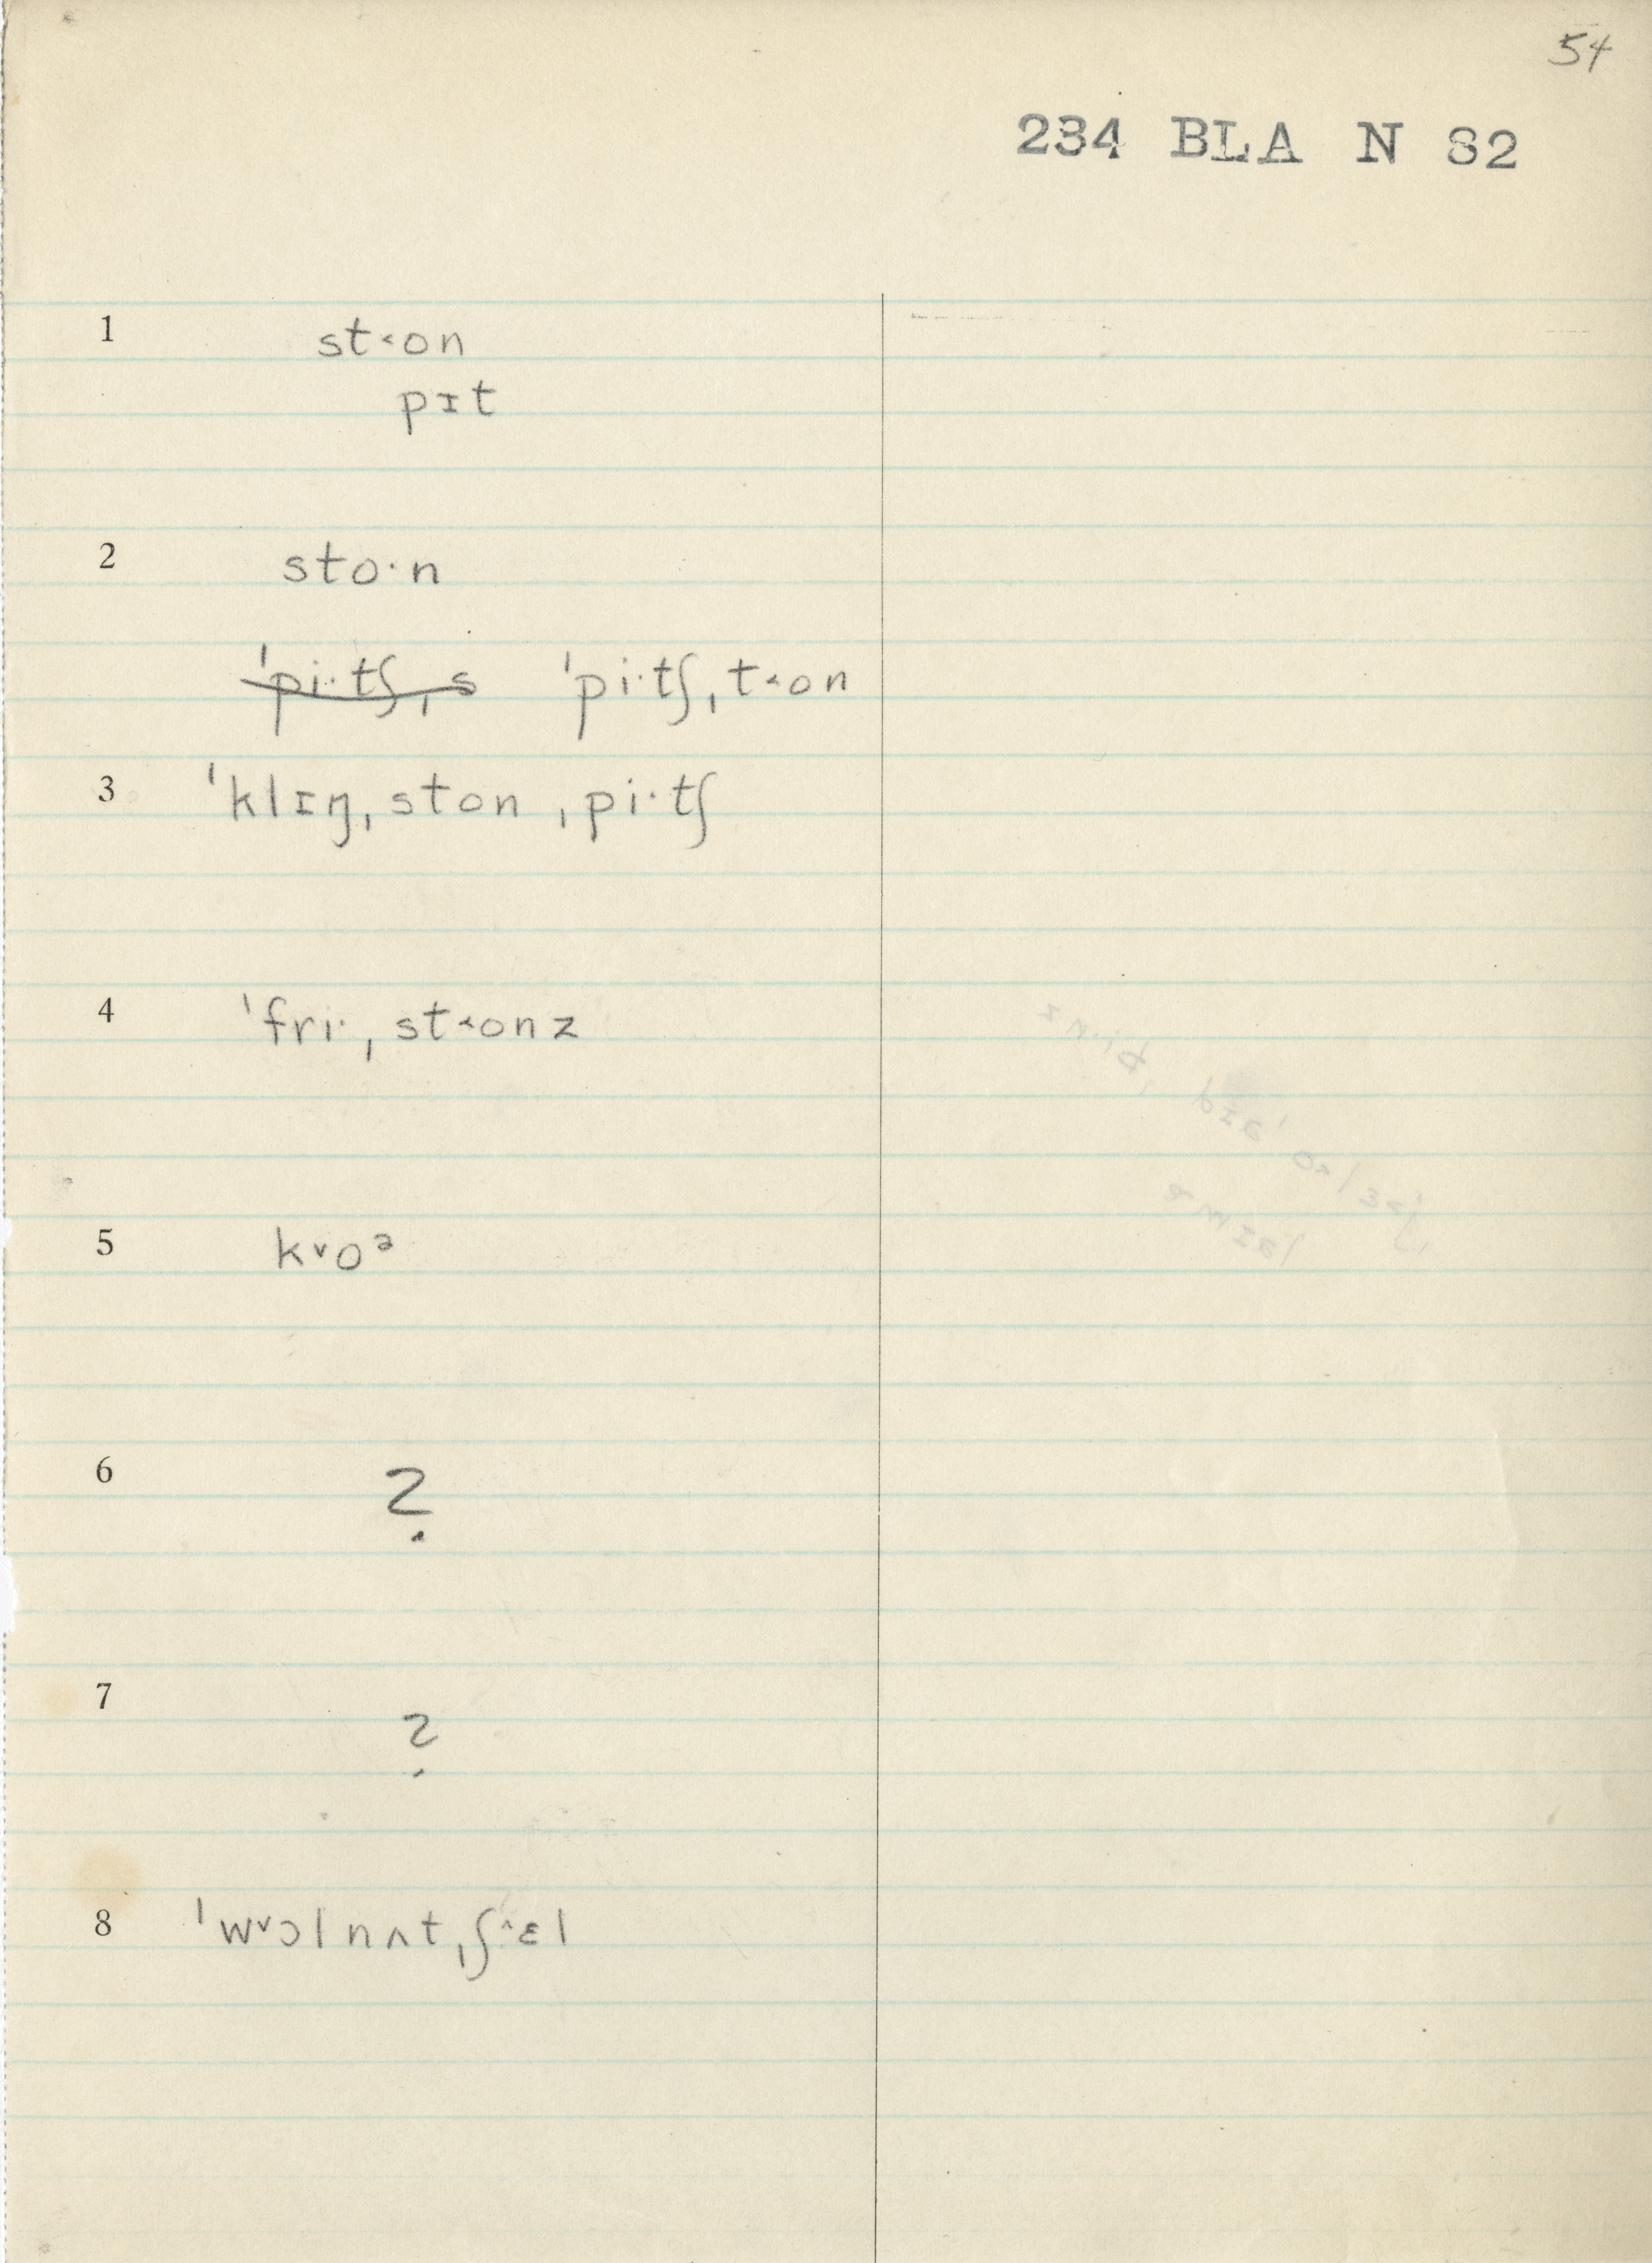 54
234 BLA N 82
1 st˂on
pɪt
2 sto·n
ˈpi·tʃˌs ˈpi·tʃˌt˂on
3 ˈklɪŋˌston ˌpi·tʃ
4 ˈfri·ˌst˂onz
5 k˅oᵊ
6 ?
7 ?
8 ˈw˅ɔlnʌtˌʃ˄ɛl